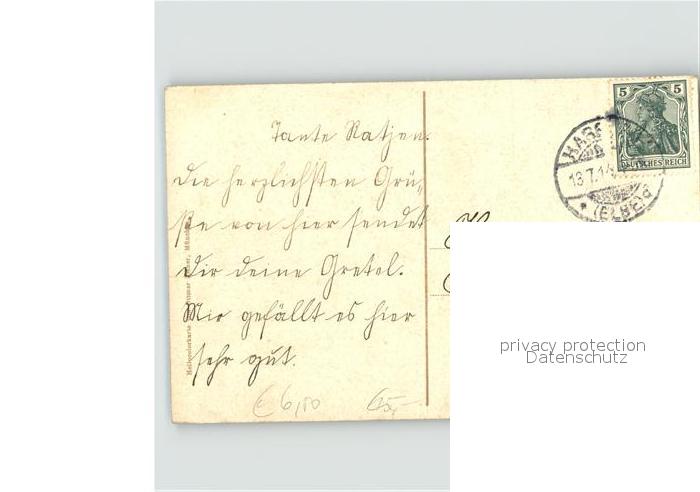 Tante Ratjen.
Die herzlichsten Grü-
ße von hier sendet
Dir deine Gretel.
Mir gefällt es hier
sehr gut.
€ 6,50
65,-
5 5
DEUTSCHES REICH
13.7.14
* (ELBE) d
privacy protection
Datenschutz